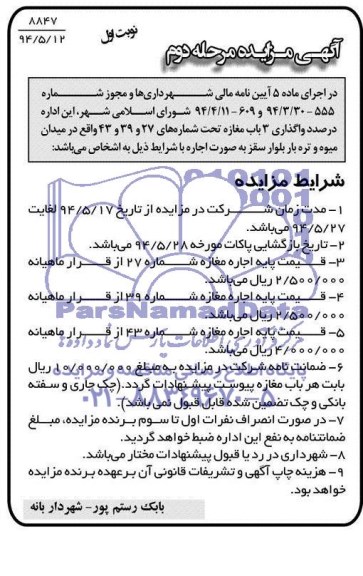 ۸۸۴۷
۹۴/۵/۱۲
نوبت اول
آگهی مزایده مرحله دوم
در اجرای ماده ۵ آیین نامه مالی شهرداری‌ها و مجوز شماره
۵۵۵ - ۹۴/۳/۳۰ و ۶۰۹-۹۴/۴/۱۱ شورای اسلامی شهر، این اداره
درصدد واگذاری ۳ باب مغازه تحت شماره‌های ۲۷ و ۳۹ و ۴۳ واقع در میدان
میوه و تره بار بلوار سقز به صورت اجاره با شرایط ذیل به اشخاص می‌باشد:
شرایط مزایده
۱- مدت زمان شرکت در مزایده از تاریخ ۹۴/۵/۱۷ لغایت
۹۴/۵/۲۷ می‌باشد.
۲- تاریخ بازگشایی پاکات مورخه ۹۴/۵/۲۸ می‌باشد.
۳- قیمت پایه اجاره مغازه شماره ۲۷ از قرار ماهیانه
۲/۵۰۰/۰۰۰ ریال می‌باشد.
۴- قیمت پایه اجاره مغازه شماره ۳۹ از قرار ماهیانه
۲/۵۰۰/۰۰۰ ریال می‌باشد.
۵- قیمت پایه اجاره مغازه شماره ۴۳ از قرار ماهیانه
۴/۰۰۰/۰۰۰ ریال می‌باشد.
۶- ضمانت نامه شرکت در مزایده به مبلغ ۱۰/۰۰۰/۰۰۰ ریال
بابت هر باب مغازه پیوست پیشنهادات گردد. (چک جاری و سفته
بانکی و چک تضمین شده قابل قبول نمی باشد).
۷- در صورت انصراف نفرات اول تا سوم برنده مزایده، مبلغ
ضمانتنامه به نفع این اداره ضبط خواهد گردید.
۸- شهرداری در رد یا قبول پیشنهادات مختار می‌باشد.
۹- هزینه چاپ آگهی و تشریفات قانونی آن برعهده برنده مزایده
خواهد بود.
بابک رستم پور- شهردار بانه
ParsNamadData